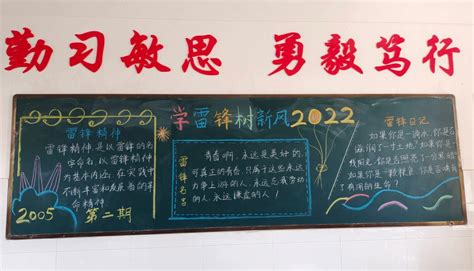 勤习敏思 勇毅笃行
学雷锋树新风2022
雷锋精神
雷锋精神,是以雷锋的名
字命名,以雷锋的精神
为基本内涵,在实践中
不断丰富和发展着的革
命精神
2005 第二期
雷锋名言
青春啊,永远是美好的,
可真正的青春,只属于这些永远
力争上游的人,永远忘我劳动
的人,永远谦虚的人!
雷锋日记
如果你是一滴水,你是否
滋润了一寸土地?如果你是
一线阳光,你是否照亮了一分黑暗?
如果你是一颗粮食,你是否哺育
了有用的生命?